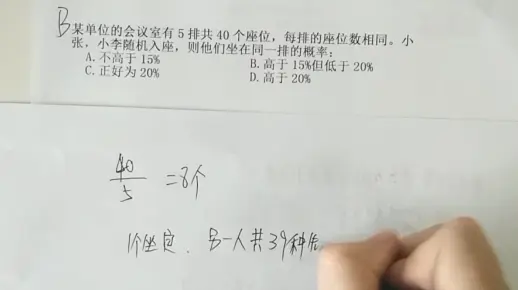 B某单位的会议室有5排共40个座位，每排的座位数相同。小
张，小李随机入座，则他们坐在同一排的概率：
A.不高于15% B.高于15%但低于20%
C.正好为20% D.高于20%
40/5 =8个
1个坐定．另一人共39种